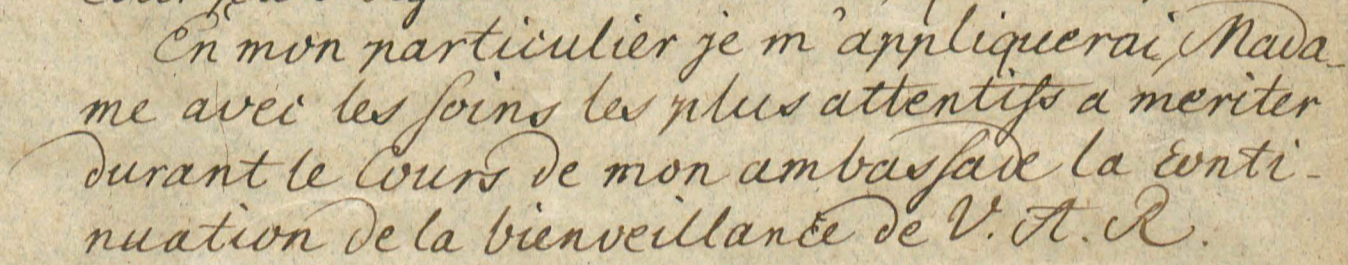 En mon particulier je m'appliquerai, Mada-
me avec les soins les plus attentifs a meriter
durant le Cours de mon ambassade la conti-
nuation de la bienveillance de V. A. R.